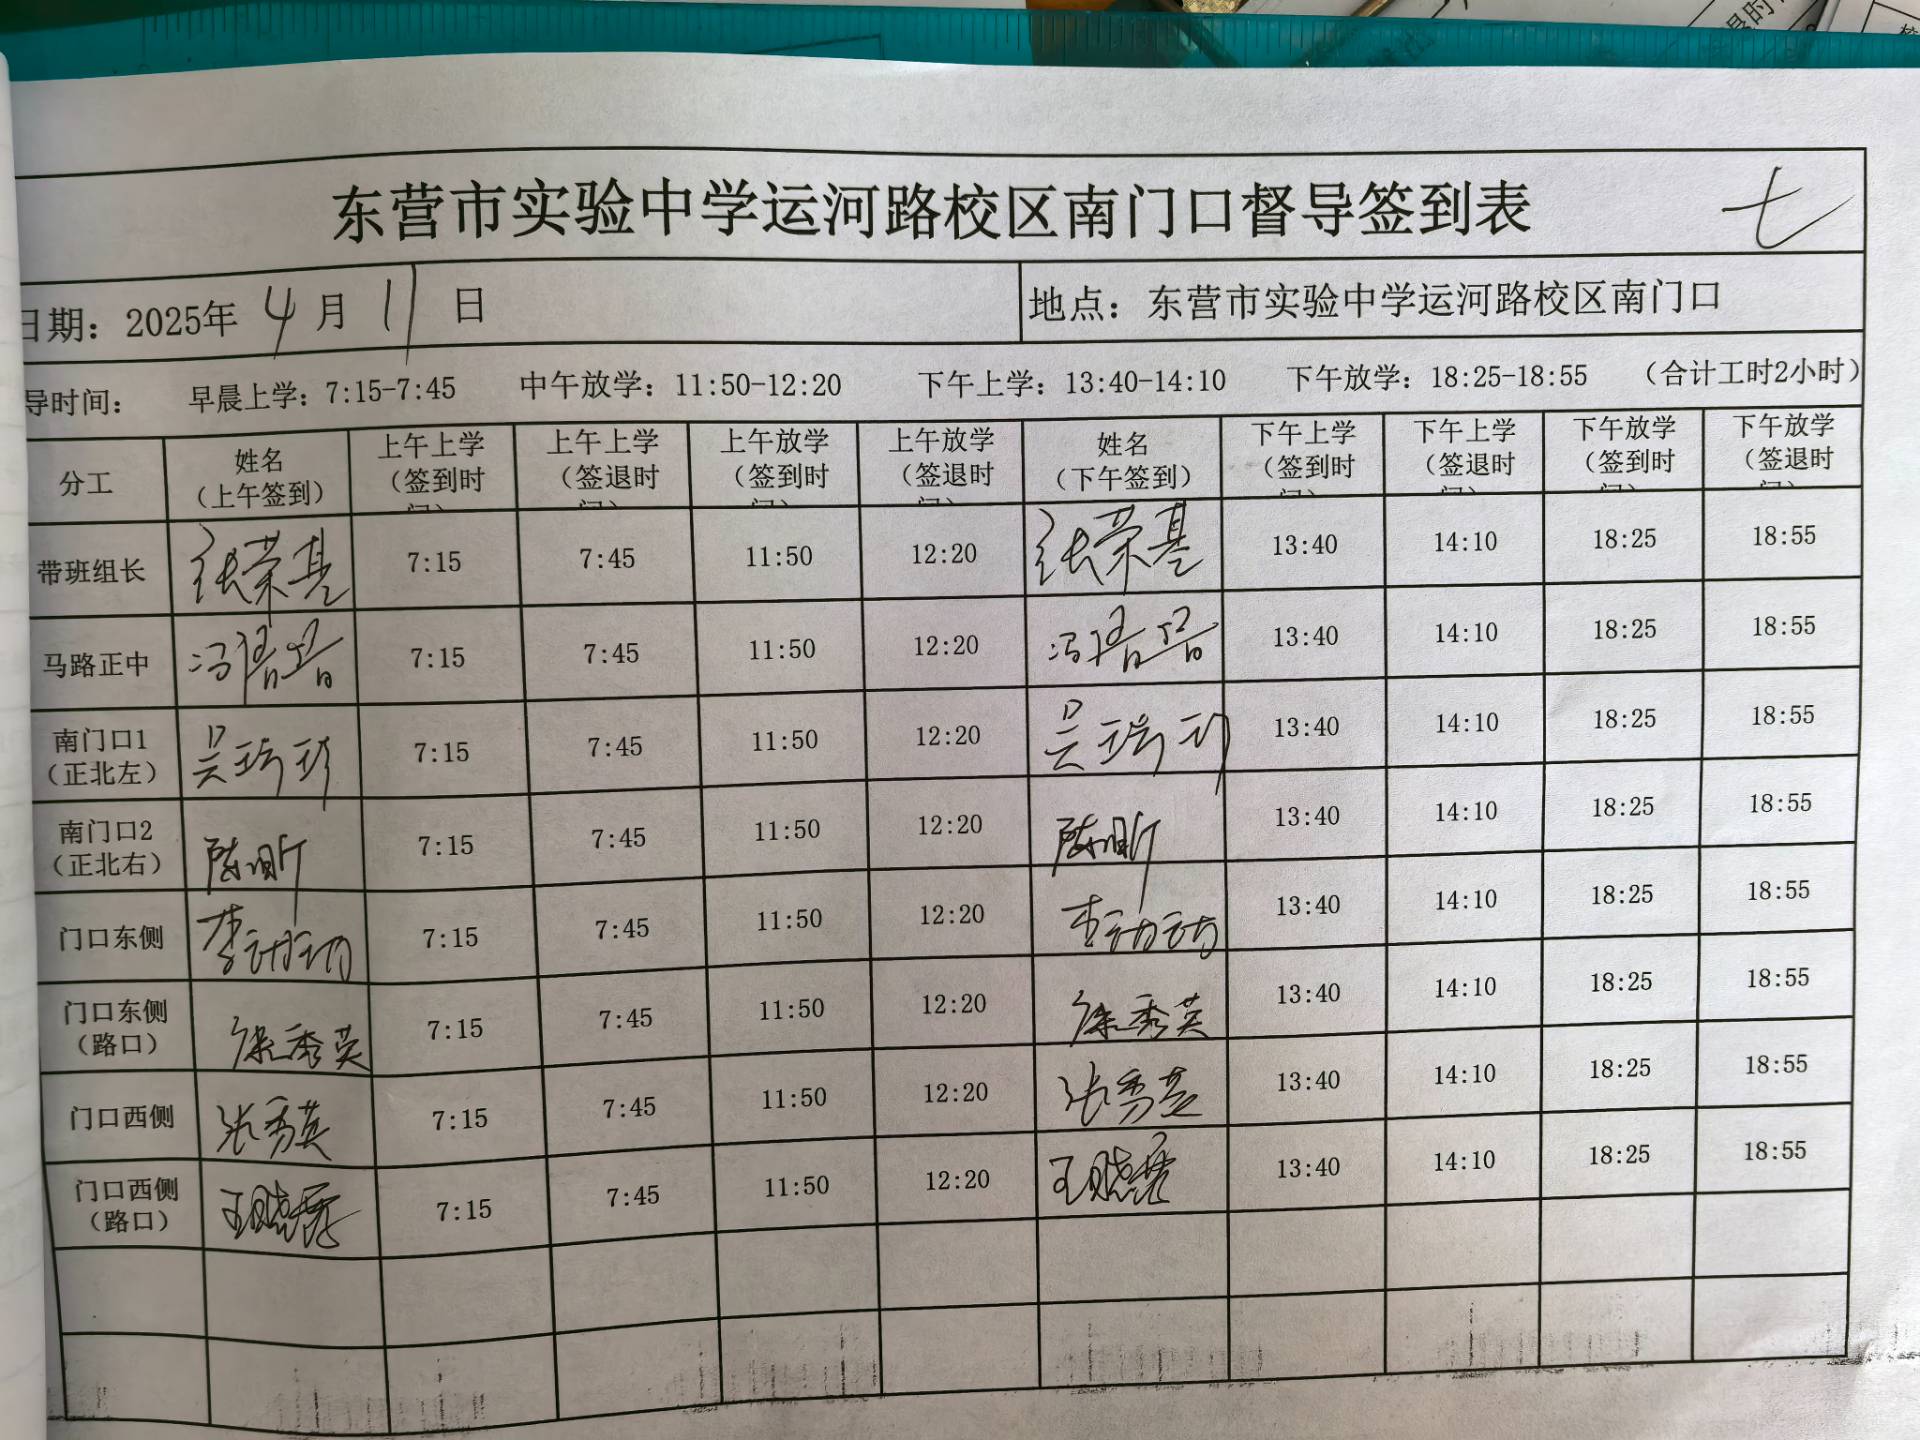 东营市实验中学运河路校区南门口督导签到表 七
日期：2025年 4 月 11 日 地点：东营市实验中学运河路校区南门口
导时间： 早晨上学：7:15-7:45 中午放学：11:50-12:20 下午上学：13:40-14:10 下午放学：18:25-18:55 （合计工时2小时）
分工 姓名（上午签到） 上午上学（签到时间） 上午上学（签退时间） 上午放学（签到时间） 上午放学（签退时间） 姓名（下午签到） 下午上学（签到时间） 下午上学（签退时间） 下午放学（签到时间） 下午放学（签退时间）
带班组长 张荣基 7:15 7:45 11:50 12:20 张荣基 13:40 14:10 18:25 18:55
马路正中 冯 7:15 7:45 11:50 12:20 冯 13:40 14:10 18:25 18:55
南门口1（正北左） 吴 7:15 7:45 11:50 12:20 吴 13:40 14:10 18:25 18:55
南门口2（正北右） 陈昕 7:15 7:45 11:50 12:20 陈昕 13:40 14:10 18:25 18:55
门口东侧 李 7:15 7:45 11:50 12:20 李 13:40 14:10 18:25 18:55
门口东侧（路口） 徐秀英 7:15 7:45 11:50 12:20 徐秀英 13:40 14:10 18:25 18:55
门口西侧 张秀英 7:15 7:45 11:50 12:20 张秀英 13:40 14:10 18:25 18:55
门口西侧（路口） 王晓磊 7:15 7:45 11:50 12:20 王晓磊 13:40 14:10 18:25 18:55